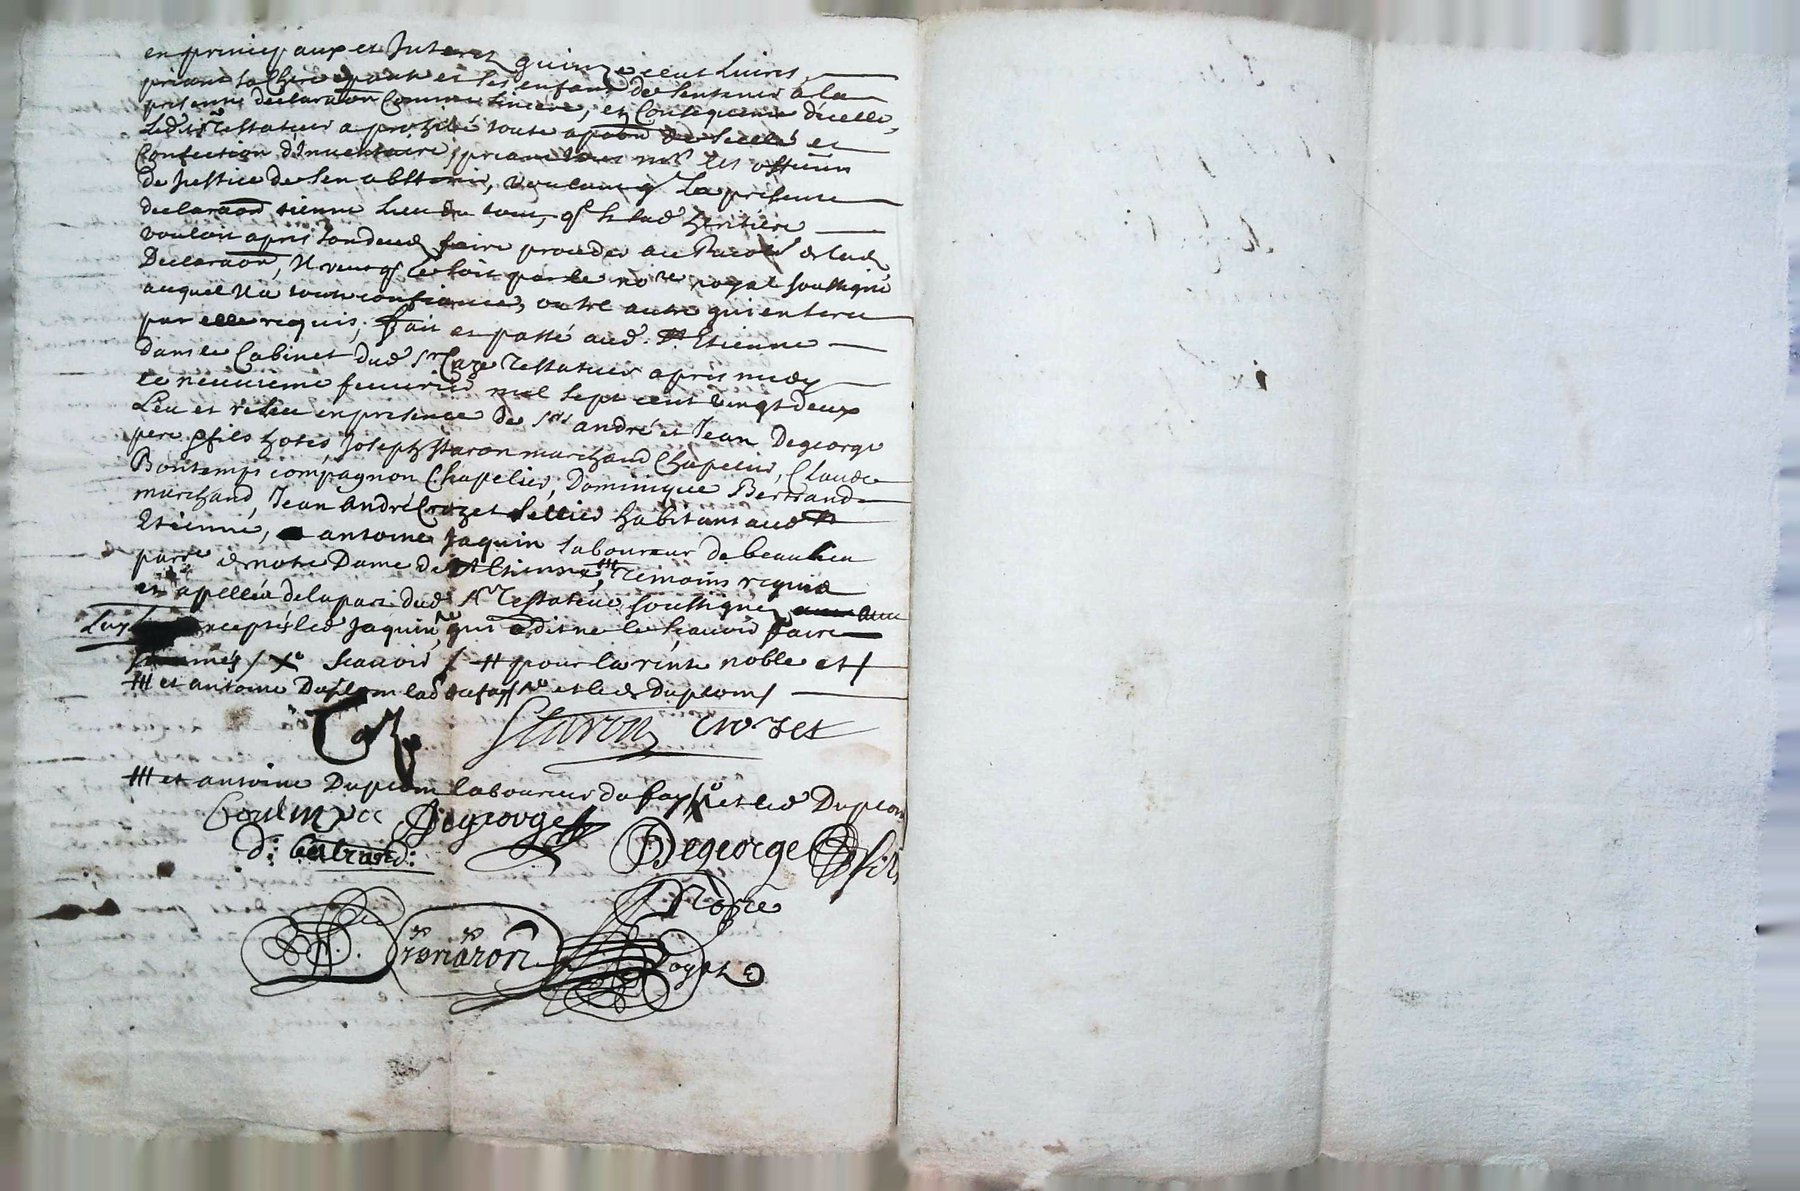 en principaux et Interet quinze cent livres
priant sa chere epouse et ses enfans de sentenir a la
presente declaraôn comme sincere, et Consequence d'icelle,
led. sr Testateur a prohibé toute apôôn de scellé et
Confection d'Inventaire, priant tous mrs les officiers
de Justice de sen abstenir, voulant q. la presente
declaraôn tienne lieu du tout, q. si lad. heritiere
vouloit apres son deced faire proceder au Recolt de lad.
Declaraôn, Il veut q. ce soit par le nore royal soussigné
auquel Il a toute confiance, outre autre qui en sera
par elle requis, fait et passé aud. St Etienne
dans le Cabinet dud. sr Caze Testateur apres midy
le neuvieme fevrier mil sept cent vingt deux
Leu et releu en presence de srs andré et Jean Degeorge
pere & fils hotes, Joseph Staron marchand Chapelier, Claude
Bontemps compagnon Chapelier, Dominique Bertrand
marchand, Jean andré Crozet sellier habitant aud. St
Etienne, antoine Jaquin laboureur de beaulieu
parre de notre Dame de St Etienne, # Temoins requis
et apellés de la part dud. sr Testateur soussignez avec
luy exceptés led. Jaquin, qui a dit ne le scavoir faire
sommés / Xo scavoir / # pour la rente noble et /
# et antoine Duplom lad. du fay / Xo et led. Duplom /
Caze
Staron Crozet
# et antoine Duplom laboureur du fay / Xo et led. Duplom
Degeorge
D: bertrand:
Degeorge fils
Nore
Royal